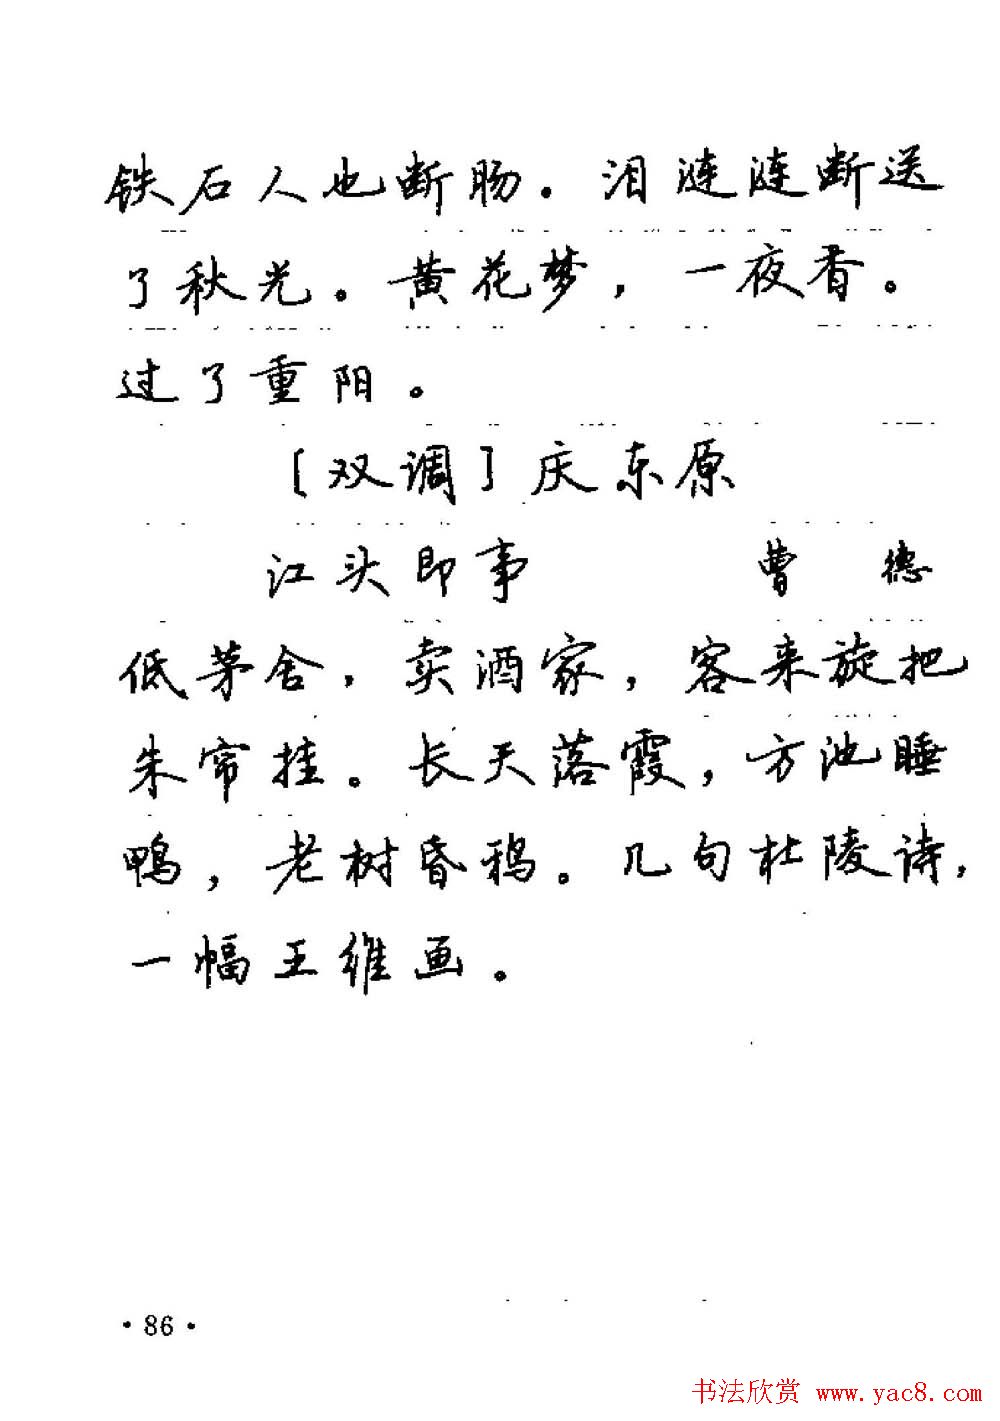 铁石人也断肠。泪涟涟断送
了秋光。黄花梦，一夜香。
过了重阳。
［双调］庆东原
江头即事 曹 德
低茅舍，卖酒家，客来旋把
朱帘挂。长天落霞，方池睡
鸭，老树昏鸦。几句杜陵诗，
一幅王维画。
·86·
书法欣赏 www.yac8.com